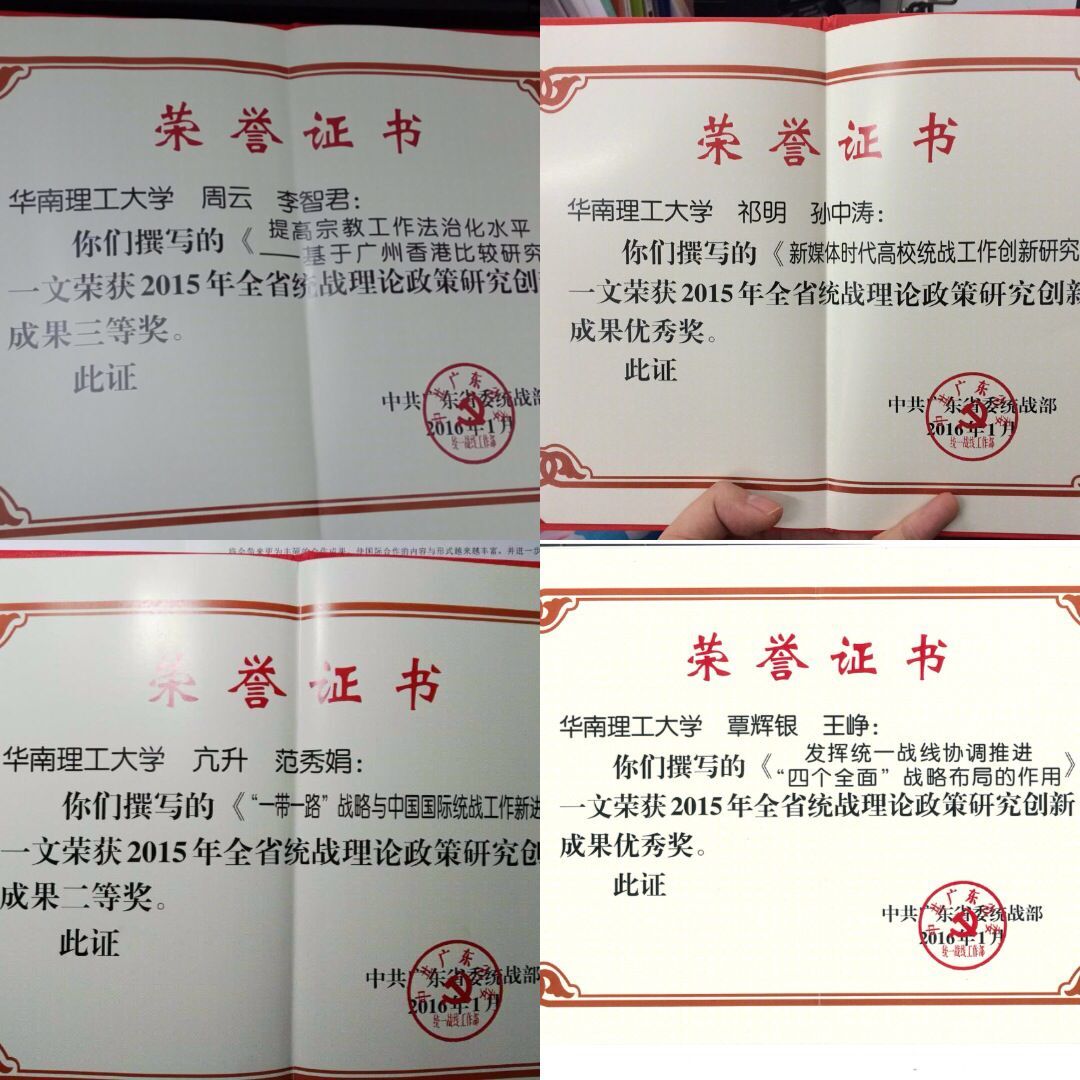 荣誉证书
华南理工大学 周云 李智君:
你们撰写的《提高宗教工作法治化水平
——基于广州香港比较研究
一文荣获2015年全省统战理论政策研究创
成果三等奖。
此证
中共广东省委统战部
2016年1月
中共广东省委
统一战线工作部
荣誉证书
华南理工大学 祁明 孙中涛:
你们撰写的《新媒体时代高校统战工作创新研究
一文荣获2015年全省统战理论政策研究创新
成果优秀奖。
此证
中共广东省委统战部
2016年1月
中共广东省委
统一战线工作部
将会带来更为丰硕的合作成果，使国际合作的内容与形式越来越丰富，并进一步
荣誉证书
华南理工大学 亢升 范秀娟:
你们撰写的《“一带一路”战略与中国国际统战工作新进
一文荣获2015年全省统战理论政策研究创
成果二等奖。
此证
中共广东省委统战部
2016年1月
中共广东省委
统一战线工作部
荣誉证书
华南理工大学 覃辉银 王峥:
你们撰写的《发挥统一战线协调推进
“四个全面”战略布局的作用》
一文荣获2015年全省统战理论政策研究创新
成果优秀奖。
此证
中共广东省委统战部
2016年1月
中共广东省委
统一战线工作部